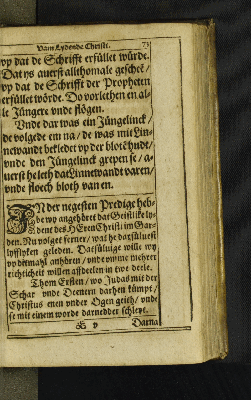 Vam Lydende Christi. 73
vp dat de Schrifft erfüllet würde.
Dat ys auerst allthomale geschee/
vp dat de Schrifft der Propheten
erfüllet wörde. Do vorlethen en al-
le Jüngere vnde flögen.
Vnde dar was ein Jüngelinck/
de volgede em na/ de was mit Lin-
newandt bekledet vp der bloten hudt/
vnde den Jüngelinck grepen se/ a-
uerst he leth dat Linnewandt varen/
vnde floech bloth van en.
IN der negesten Predige heb-
be wy angehöret dat Geistlike ly-
dent des HEren Christi im Gar-
den. Nu volget ferner/ wat he darsüluest
lyfflyken geleden. Datsülvige wille wy
vp ditmahl anhören/ vnde vmme mehrer
richticheit willen affdeelen in twe deele.
Thom Ersten/ wo Judas mit der
Schar vnde Deenern darhen kümpt/
Christus enen vnder Ogen geith/ vnde
se mit einem worde darnedder schleyt.
K v Darna